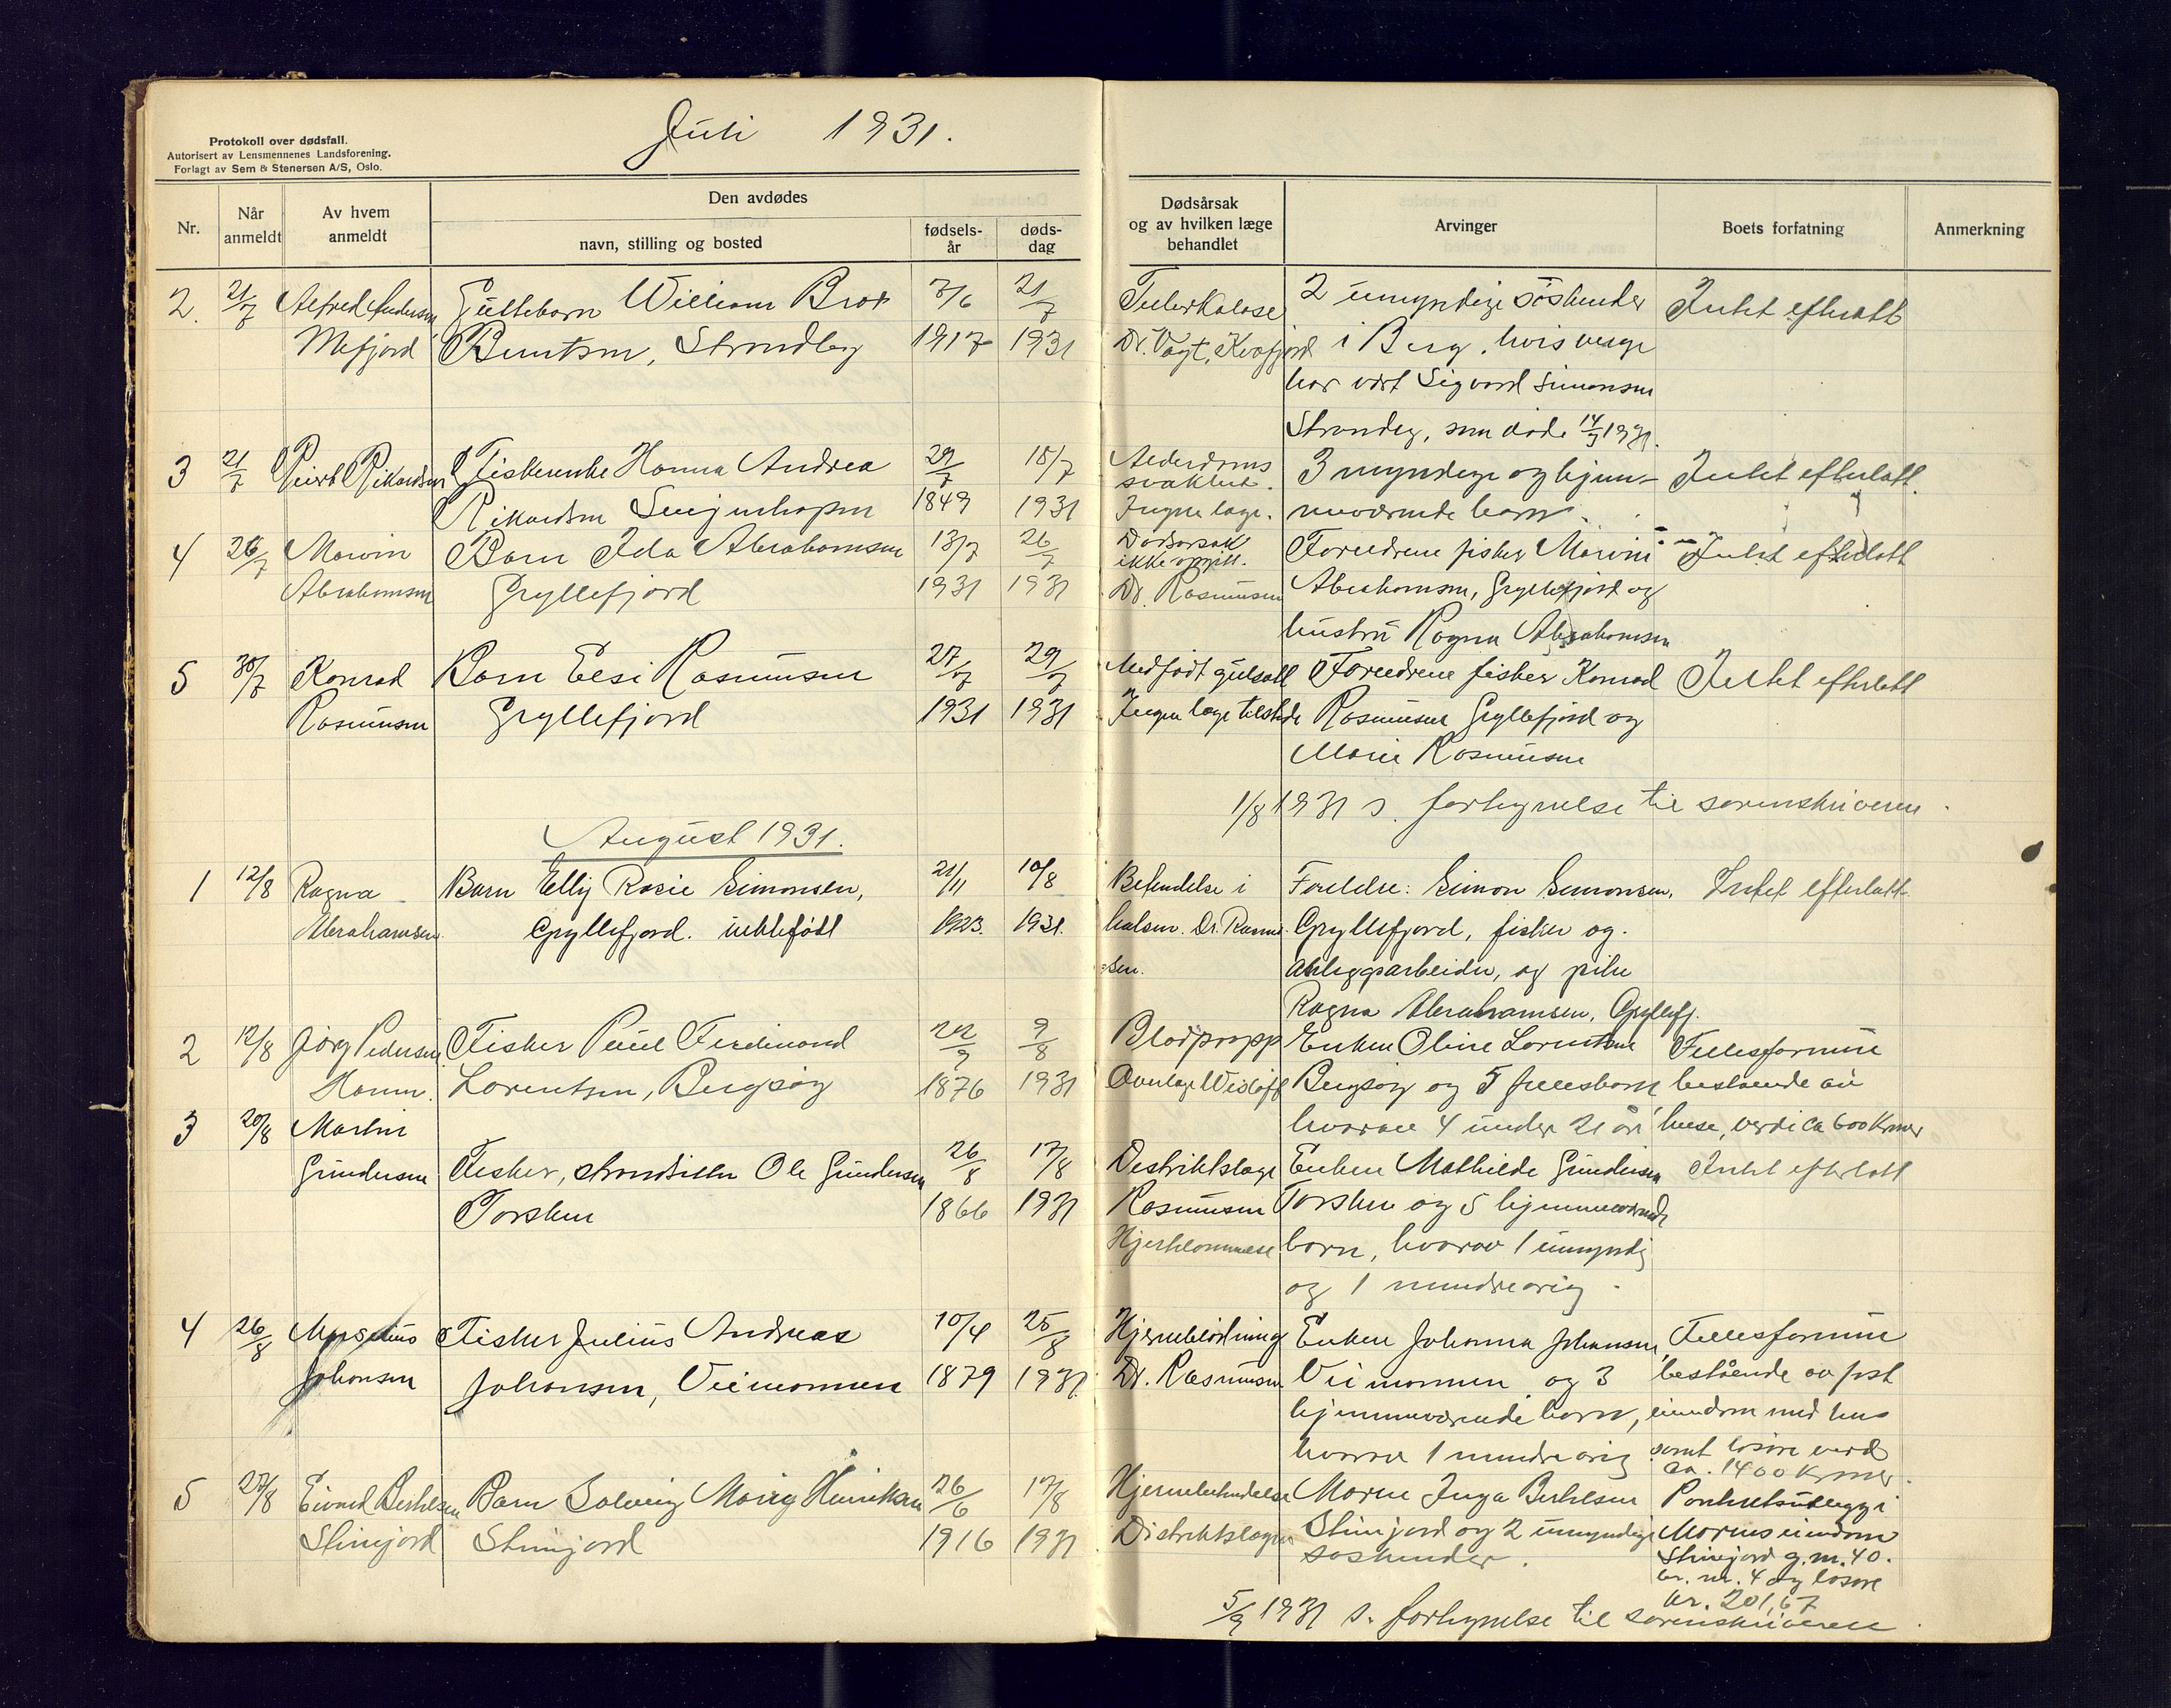 Juli 1931.
Protokoll over dødsfall.
Autorisert av Lensmennenes Landsforening.
Forlagt av Sem & Stenersen A/S, Oslo.
Nr.
Når anmeldt
Av hvem anmeldt
Den avdødes
navn, stilling og bosted
fødsels-år
døds-dag
Dødsårsak og av hvilken læge behandlet
Arvinger
Boets forfatning
Anmerkning
2. 21/7 Alfred Andersen Gutteborn William Brox 7/6 21/7 Tuberkulose 2 umyndige søskender Intet efterlatt
Mefjord Berntsen, Strandby 1917 1931 Dr. Vogt, Kvæfjord i Berg, hvis verge
har vært Sigvard Simonsen
Strandby, som døde 14/3 1931.
3 21/7 Rikardsen Fiskerenke Hanna Andrea 29/7 18/7 Alderdoms 3 myndige og hjem- Intet efterlatt.
Rikardsen Senjenhopen 1849 1931 svakhet. Ingen læge. meværende barn.
4 26/7 Marvin Barn Ida Abrahamsen 13/7 26/7 Dødsårsak Foreldrene fisker Marvin Intet efterlatt
ikke opgitt.
Abrahamsen Gryllefjord 1931 1931 Dr. Rasmussen Abrahamsen, Gryllefjord og
hustru Ragna Abrahamsen
5 30/7 Konrad Barn Elsi Rasmussen 27/7 29/7 Medfødt gulsott Foreldrene fisker Konrad Intet efterlatt
Rasmussen Gryllefjord 1931 1931 Ingen læge tilstede Rasmussen Gryllefjord og
Marie Rasmussen
1/8 1931 s. fortegnelse til sorenskriveren.
August 1931.
1 12/8 Ragna Barn Elly Rosie Simonsen, 21/11 10/8 Betendelse i Foreldre: Simon Simonsen, Intet efterlatt
Abrahamsen Gryllefjord. uektefødt 1923. 1931. halsen. Dr. Rasmus- Gryllefjord, fisker og
sen. anleggsarbeider, og pike
Ragna Abrahamsen, Gryllefj.
2 12/8 Jørg Pedersen Fisker Paul Ferdinand 22/9 9/8 Blodpropp Enken Oline Lorentsen Fellesformue
Hamn. Lorentsen, Bergsøy 1876 1931 Overlæge Wisløff Bergsøy og 5 fellesbarn bestående av
hvorav 4 under 21 år huse, verdi ca 600 kroner
3 20/8 Martin
Gundersen Fisker, strandsitter Ole Gundersen 26/8 17/8 Distriktslæge Enken Mathilde Gundersen Intet efterlatt
Torsken 1866 1931 Rasmussen Torsken og 5 hjemmeværende
Hjertelammelse barn, hvorav 1 umyndig
og 1 mindreårig.
4 26/8 Johansen Fisker Julius Andreas 10/4 25/8 Hjerneblødning Enken Johanna Johansen, Fellesformue
Johansen, 1879 1931 Dr. Rasmussen og 3 bestående av fast
hjemmeværende barn, eiendom med hus
hvorav 1 mindreårig samt løsøre verd
ca. 1400 kroner.
5 27/8 Eivind Berthelsen Barn Solveig Mary Henriksen 26/6 17/8 Hjernebetendelse Moren Inga Berthelsen Panteutlegg i
Stinjord Stinjord 1916 1931 Distriktslægen Stinjord og 2 umyndige Morens eiendom
søskender. Stinjord g.nr. 40.
br. nr. 4 og løsøre
kr. 201,67
5/9 1931 s. fortegnelse til sorenskriveren.